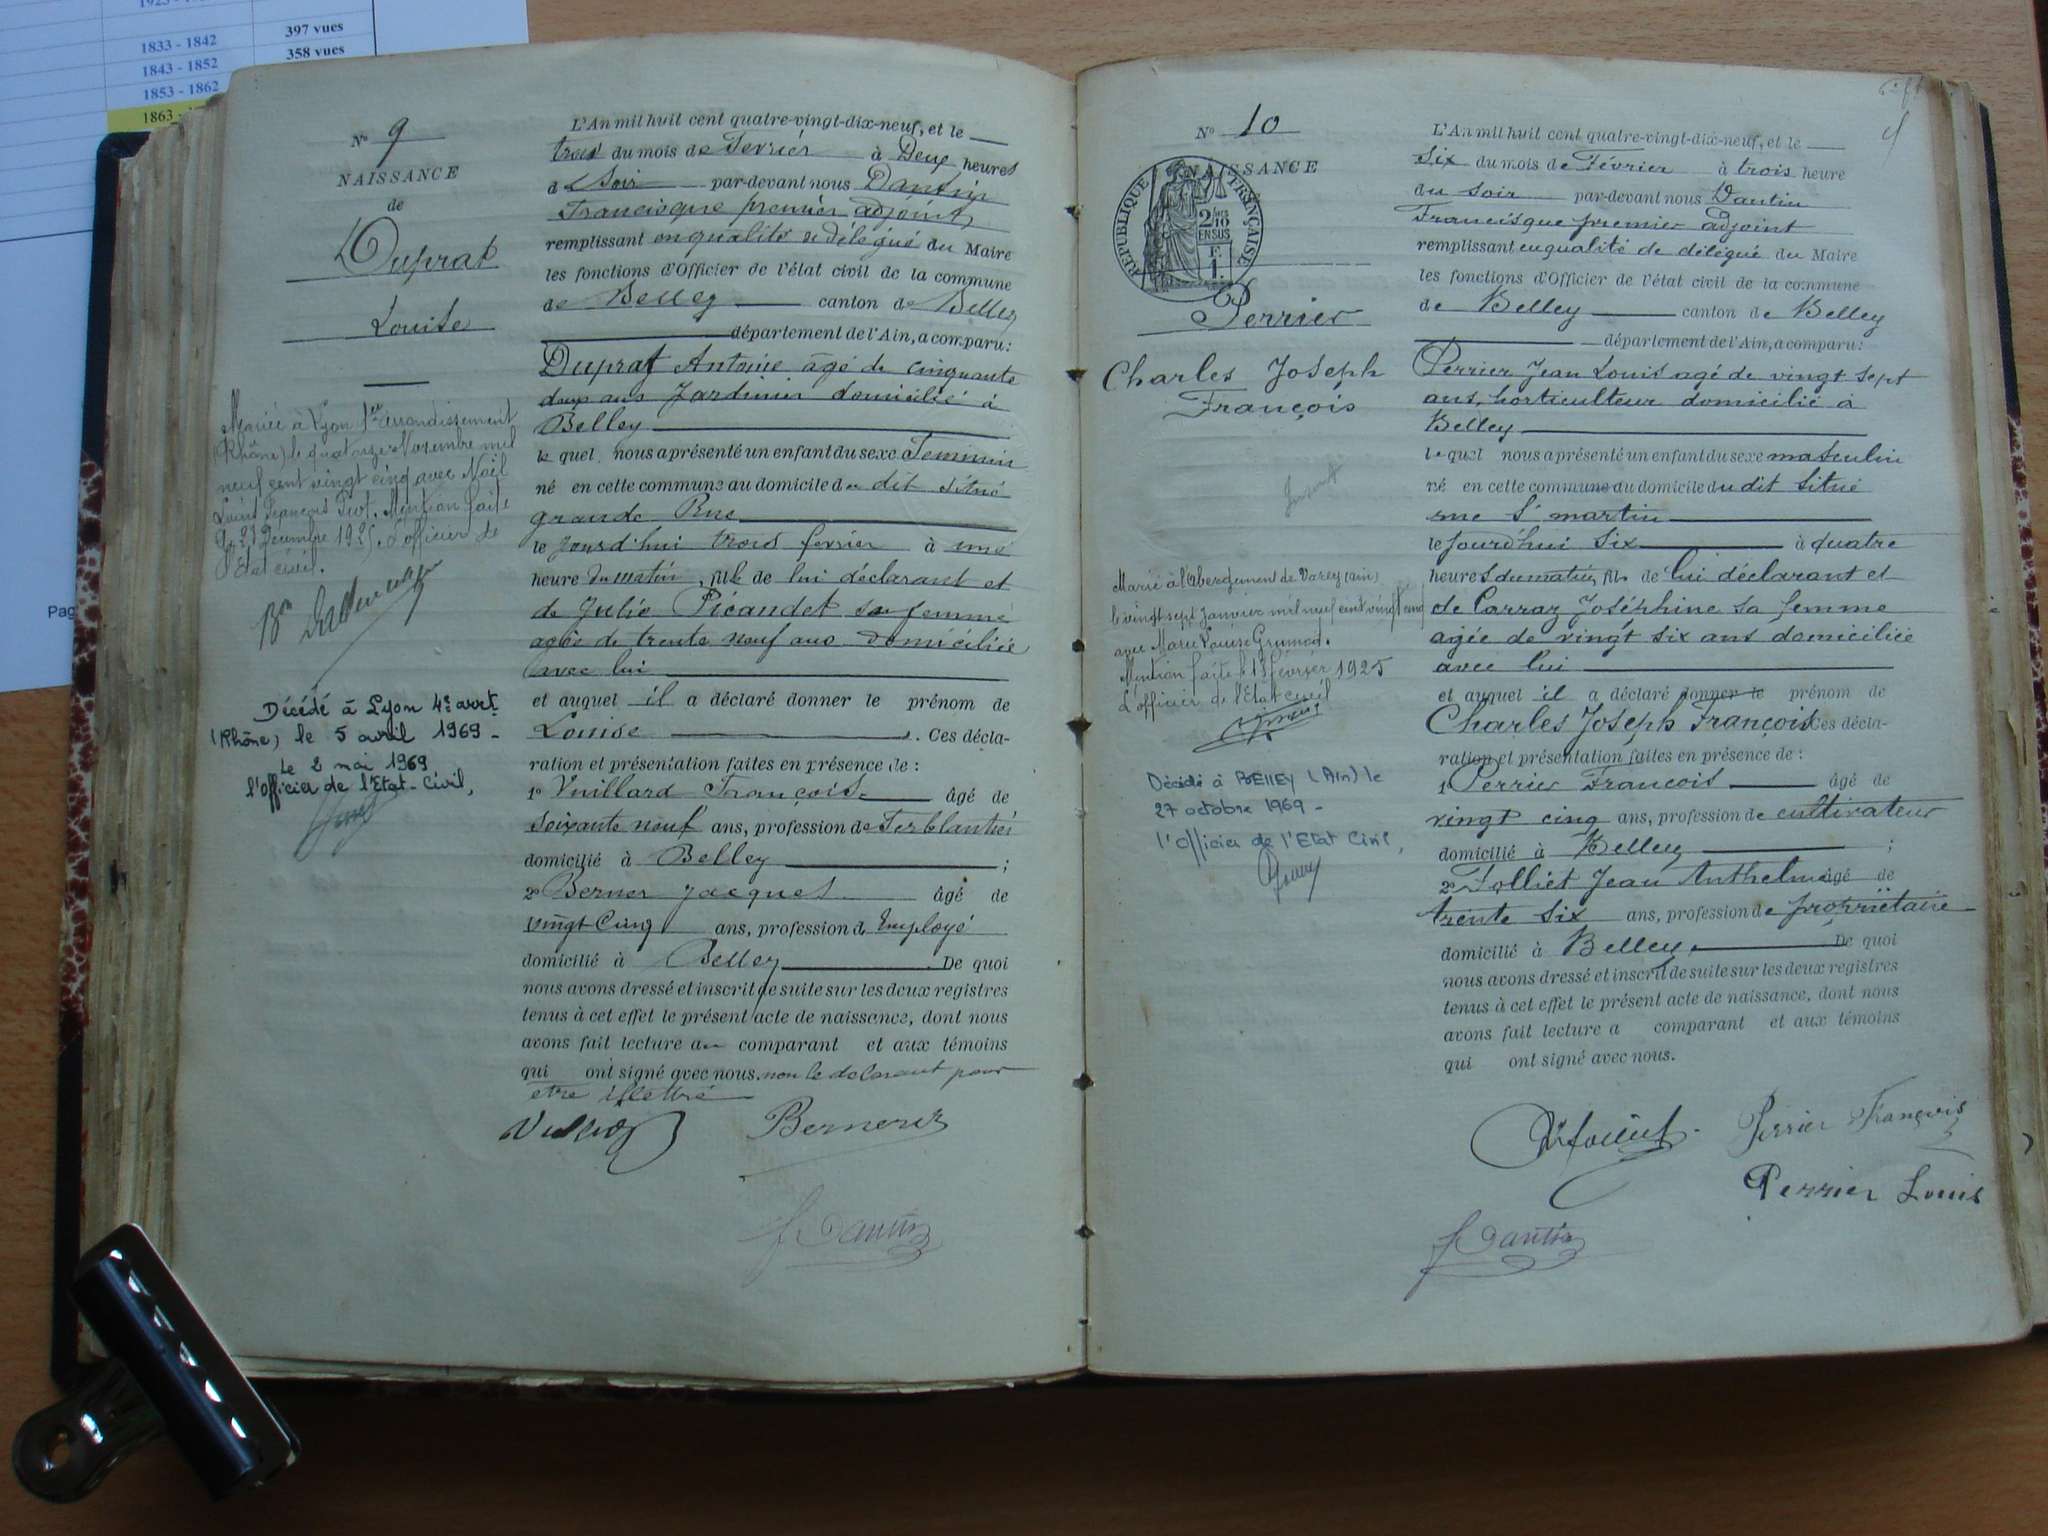 397 vues
1833 - 1842
358 vues
1843 - 1852
1853 - 1862
1863 -
Pag
N° 9
NAISSANCE
de
Duprat
Louise
Mariée à Lyon 1er arrondissement
(Rhône) le quatorze Novembre mil
neuf cent vingt cinq avec Noël
Louis François Mention faite
le 21 Décembre 1925. L'officier de
l'Etat civil.
Décédé à Lyon 4e arrt
(Rhône) le 5 avril 1969 -
Le 2 mai 1969
l'officier de l'Etat-Civil,
L'An mil huit cent quatre-vingt-dix-neuf, et le
trois du mois de Fevrier à Deux heures
d Soir par-devant nous Dantin
Francisque premier adjoint
remplissant en qualité de délégué du Maire
les fonctions d'Officier de l'état civil de la commune
de Belley canton de Belley
département de l'Ain, a comparu:
Duprat Antoine âgé de cinquante
deux ans Jardinier domicilié à
Belley
le quel nous a présenté un enfant du sexe Feminin
né en cette commune au domicile du dit situé
grande Rue
le jourd'hui trois fevrier à une
heure du matin, fille de lui déclarant et
de Julie Picaudet sa femme
agée de trente neuf ans domiciliée
avec lui
et auquel il a déclaré donner le prénom de
Louise . Ces décla-
ration et présentation faites en présence de :
1° Vuillard François âgé de
soixante neuf ans, profession de Ferblantier
domicilié à Belley ;
2° Berner Jacques âgé de
vingt Cinq ans, profession d Employé
domicilié à Belley . De quoi
nous avons dressé et inscrit de suite sur les deux registres
tenus à cet effet le présent acte de naissance, dont nous
avons fait lecture au comparant et aux témoins
qui ont signé avec nous. non le déclarant pour
etre illettré
Dantin
N° 10
NAISSANCE
RÉPUBLIQUE FRANÇAISE
2/10
EN SUS
F.
1.
Perrier
Charles Joseph
François
Marié à l'Abergement de Varey (Ain)
le vingt sept Janvier mil neuf cent vingt cinq
avec Marie Louise Grumod.
Mention faite le 13 février 1925
L'officier de l'Etat civil
Décédé à BELLEY (Ain) le
27 octobre 1969 -
l'Officier de l'Etat Civil,
L'An mil huit cent quatre-vingt-dix-neuf, et le
six du mois de Février à trois heure
du soir par-devant nous Dantin
Francisque premier adjoint
remplissant en qualité de délégué du Maire
les fonctions d'Officier de l'état civil de la commune
de Belley canton de Belley
département de l'Ain, a comparu:
Perrier Jean Louis agé de vingt sept
ans, horticulteur domicilié à
Belley
le quel nous a présenté un enfant du sexe masculin
né en cette commune au domicile du dit situé
rue St martin
le jourd'hui six à quatre
heures du matin, fils de lui déclarant et
de Carraz Joséphine sa femme
agée de vingt six ans domiciliée
avec lui
et auquel il a déclaré donner le prénom de
Charles Joseph François Ces décla-
ration et présentation faites en présence de :
1 Perrier Francois âgé de
vingt cinq ans, profession de cultivateur
domicilié à Belley ;
2° Folliet Jean Anthelme âgé de
trente six ans, profession de propriétaire
domicilié à Belley. De quoi
nous avons dressé et inscrit de suite sur les deux registres
tenus à cet effet le présent acte de naissance, dont nous
avons fait lecture a comparant et aux témoins
qui ont signé avec nous.
Perrier François
Perrier Louis
Dantin